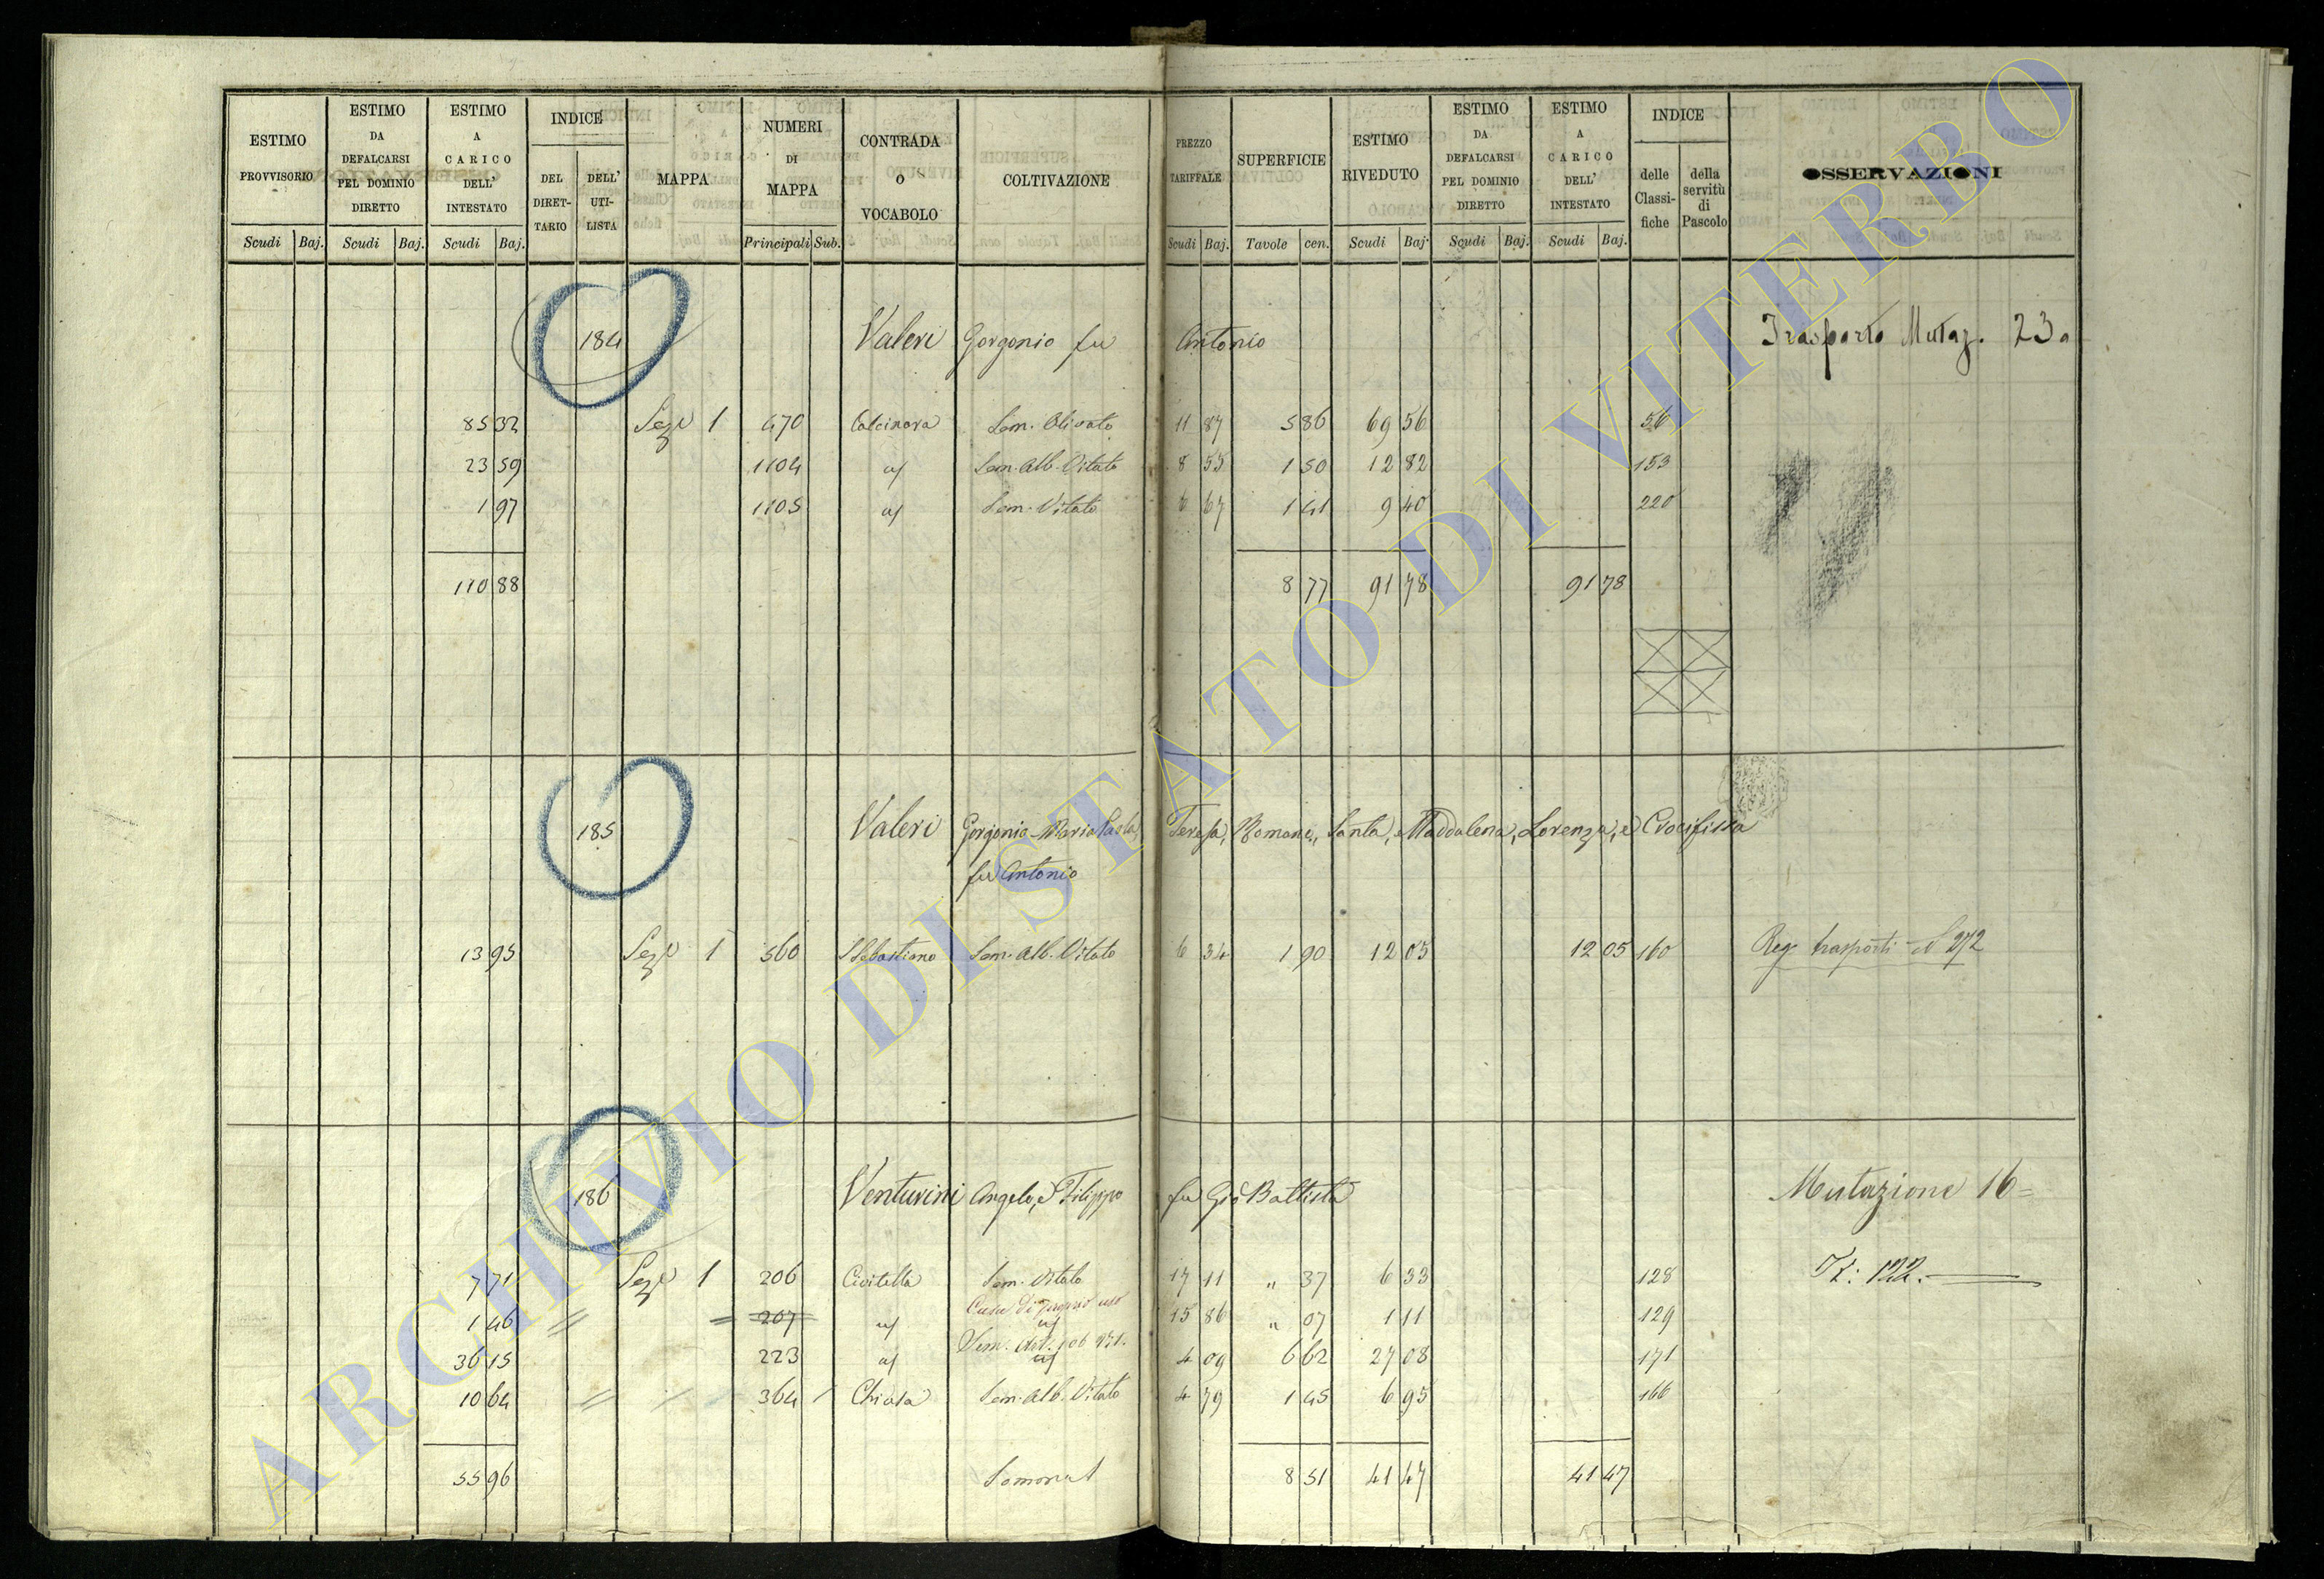 ESTIMO PROVVISORIO | ESTIMO DA DEFALCARSI PEL DOMINIO DIRETTO | ESTIMO A CARICO DELL' INTESTATO | INDICE | MAPPA | NUMERI DI MAPPA | CONTRADA O VOCABOLO | COLTIVAZIONE | PREZZO TARIFFALE | SUPERFICIE | ESTIMO RIVEDUTO | ESTIMO DA DEFALCARSI PEL DOMINIO DIRETTO | ESTIMO A CARICO DELL' INTESTATO | INDICE | OSSERVAZIONI
DEL DIRET-TARIO | DELL' UTI-LISTA | delle Classi-fiche | della servitù di Pascolo
Scudi | Baj. | Scudi | Baj. | Scudi | Baj. | Principali | Sub. | Scudi | Baj. | Tavole | cen. | Scudi | Baj. | Scudi | Baj. | Scudi | Baj.
184 Valeri Gorgonio fu Antonio Trasporto Mutaz. 23
85 32 Sez.e 1 470 Calcinara Sem. Olivato 11 87 5 86 69 56 56
23 59 1104 Sem. Alb. Vitato 8 55 1 50 12 82 153
1 97 1105 Sem. Vitato 6 67 1 41 9 40 220
110 88 8 77 91 78 91 78
185 Valeri Gorgonio, Maria Teresa, Romana, Santa, Maddalena, Lorenza, e Crocifissa
fu Antonio
13 95 Sez.e 1 560 S Sebastiano Sem. Alb. Vitato 6 34 1 90 12 05 12 05 160 Reg trasporti N 272
186 Venturini Angelo, e Filippo fu Gio Battista Mutazione 16
7 71 Sez.e 1 206 Civitella Sem. Vitato 17 11 " 37 6 33 128 122
Casa di proprio uso
1 46 207 15 86 " 07 1 11 129
36 15 223 4 09 6 62 27 08 171
10 64 364 Chiusa Sem. Alb. Vitato 4 79 1 45 6 95 166
55 96 8 51 41 47 41 47
ARCHIVIO DI STATO DI VITERBO